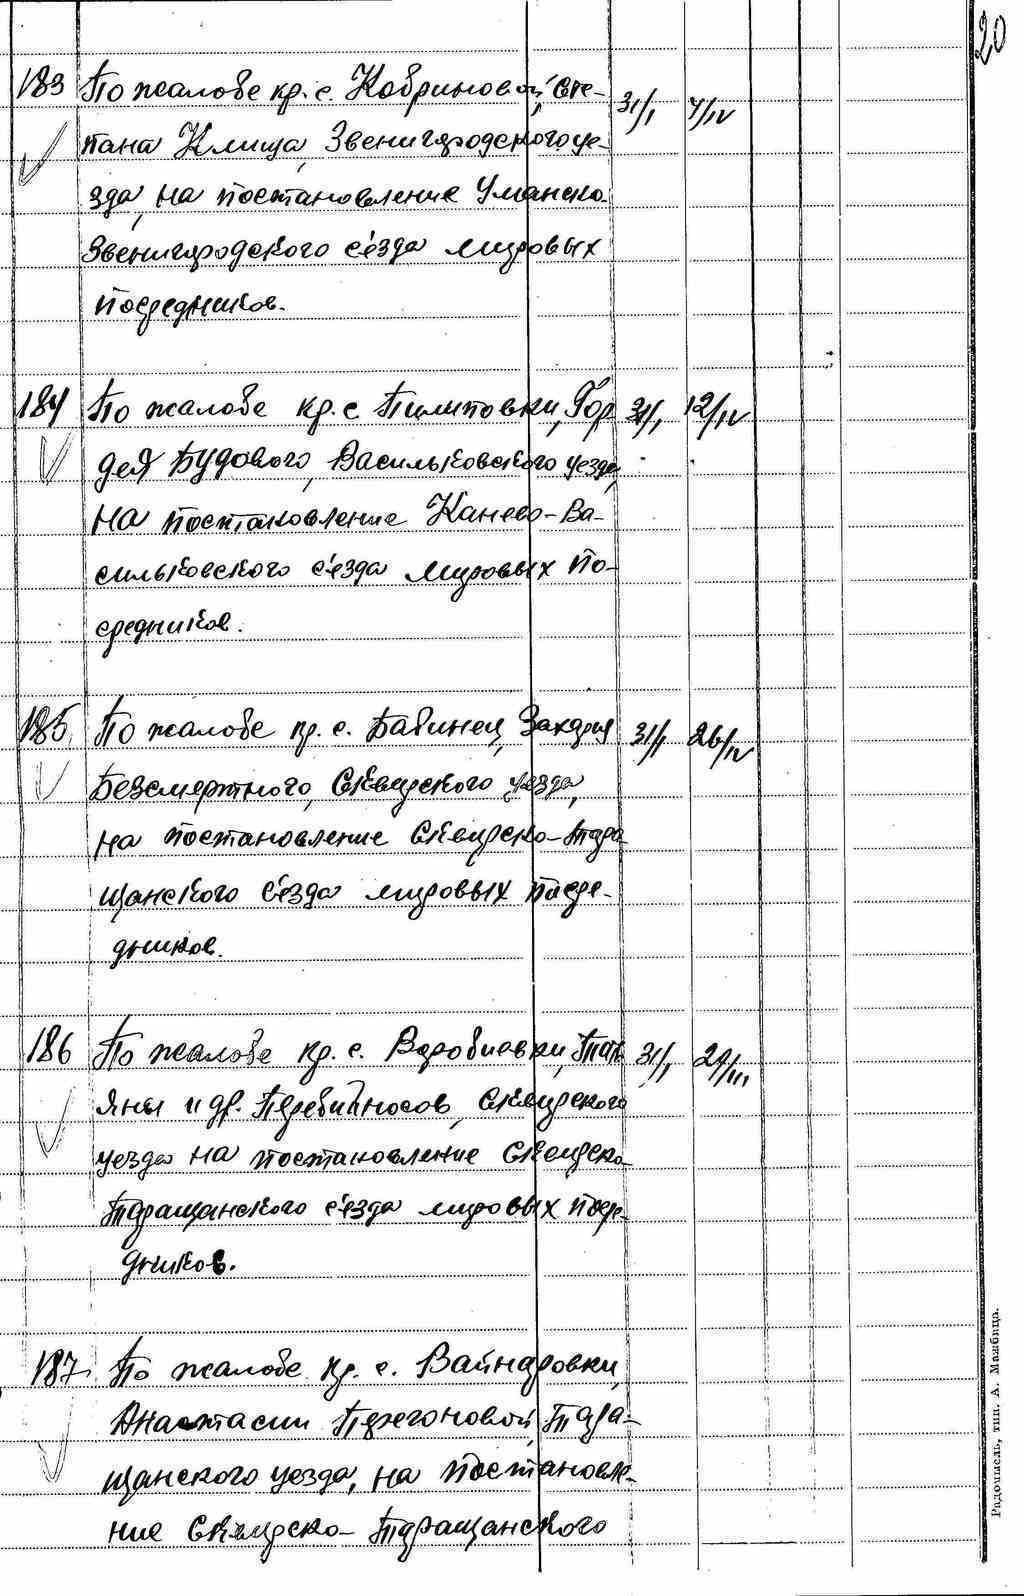 20
183 По жалобе кр. с. Кобриновой, Сте- 31/I 7/IV
пана Клища, Звенигородского уе-
зда, на постановление Уманско-
Звенигородского с'езда мировых
посредников.
184 По жалобе кр. с. Пилиповки, Гор 31/I 12/IV
дея Будового, Васильковского уезда,
на постановление Канево-Ва-
сильковского с'езда мировых по-
средников.
185 По жалобе кр. с. Бабинец, Захария 31/I 26/IV
Безсмертного, Сквирского уезда,
на постановление Сквирско-Тара
щанского с'езда мировых посре-
дников.
186 По жалобе кр. с. Воробиевки, Тать 31/I 29/III
яны и др. Перебийносов, Сквирского
уезда на постановление Сквирско-
Таращанского с'езда мировых поср-
дников.
187 По жалобе кр. с. Вайнаровки,
Анастасии Перегоновой, Тара-
щанского уезда, на постановле-
ние Сквирско-Таращанского
Радомысль, тип. А. Мажбица.